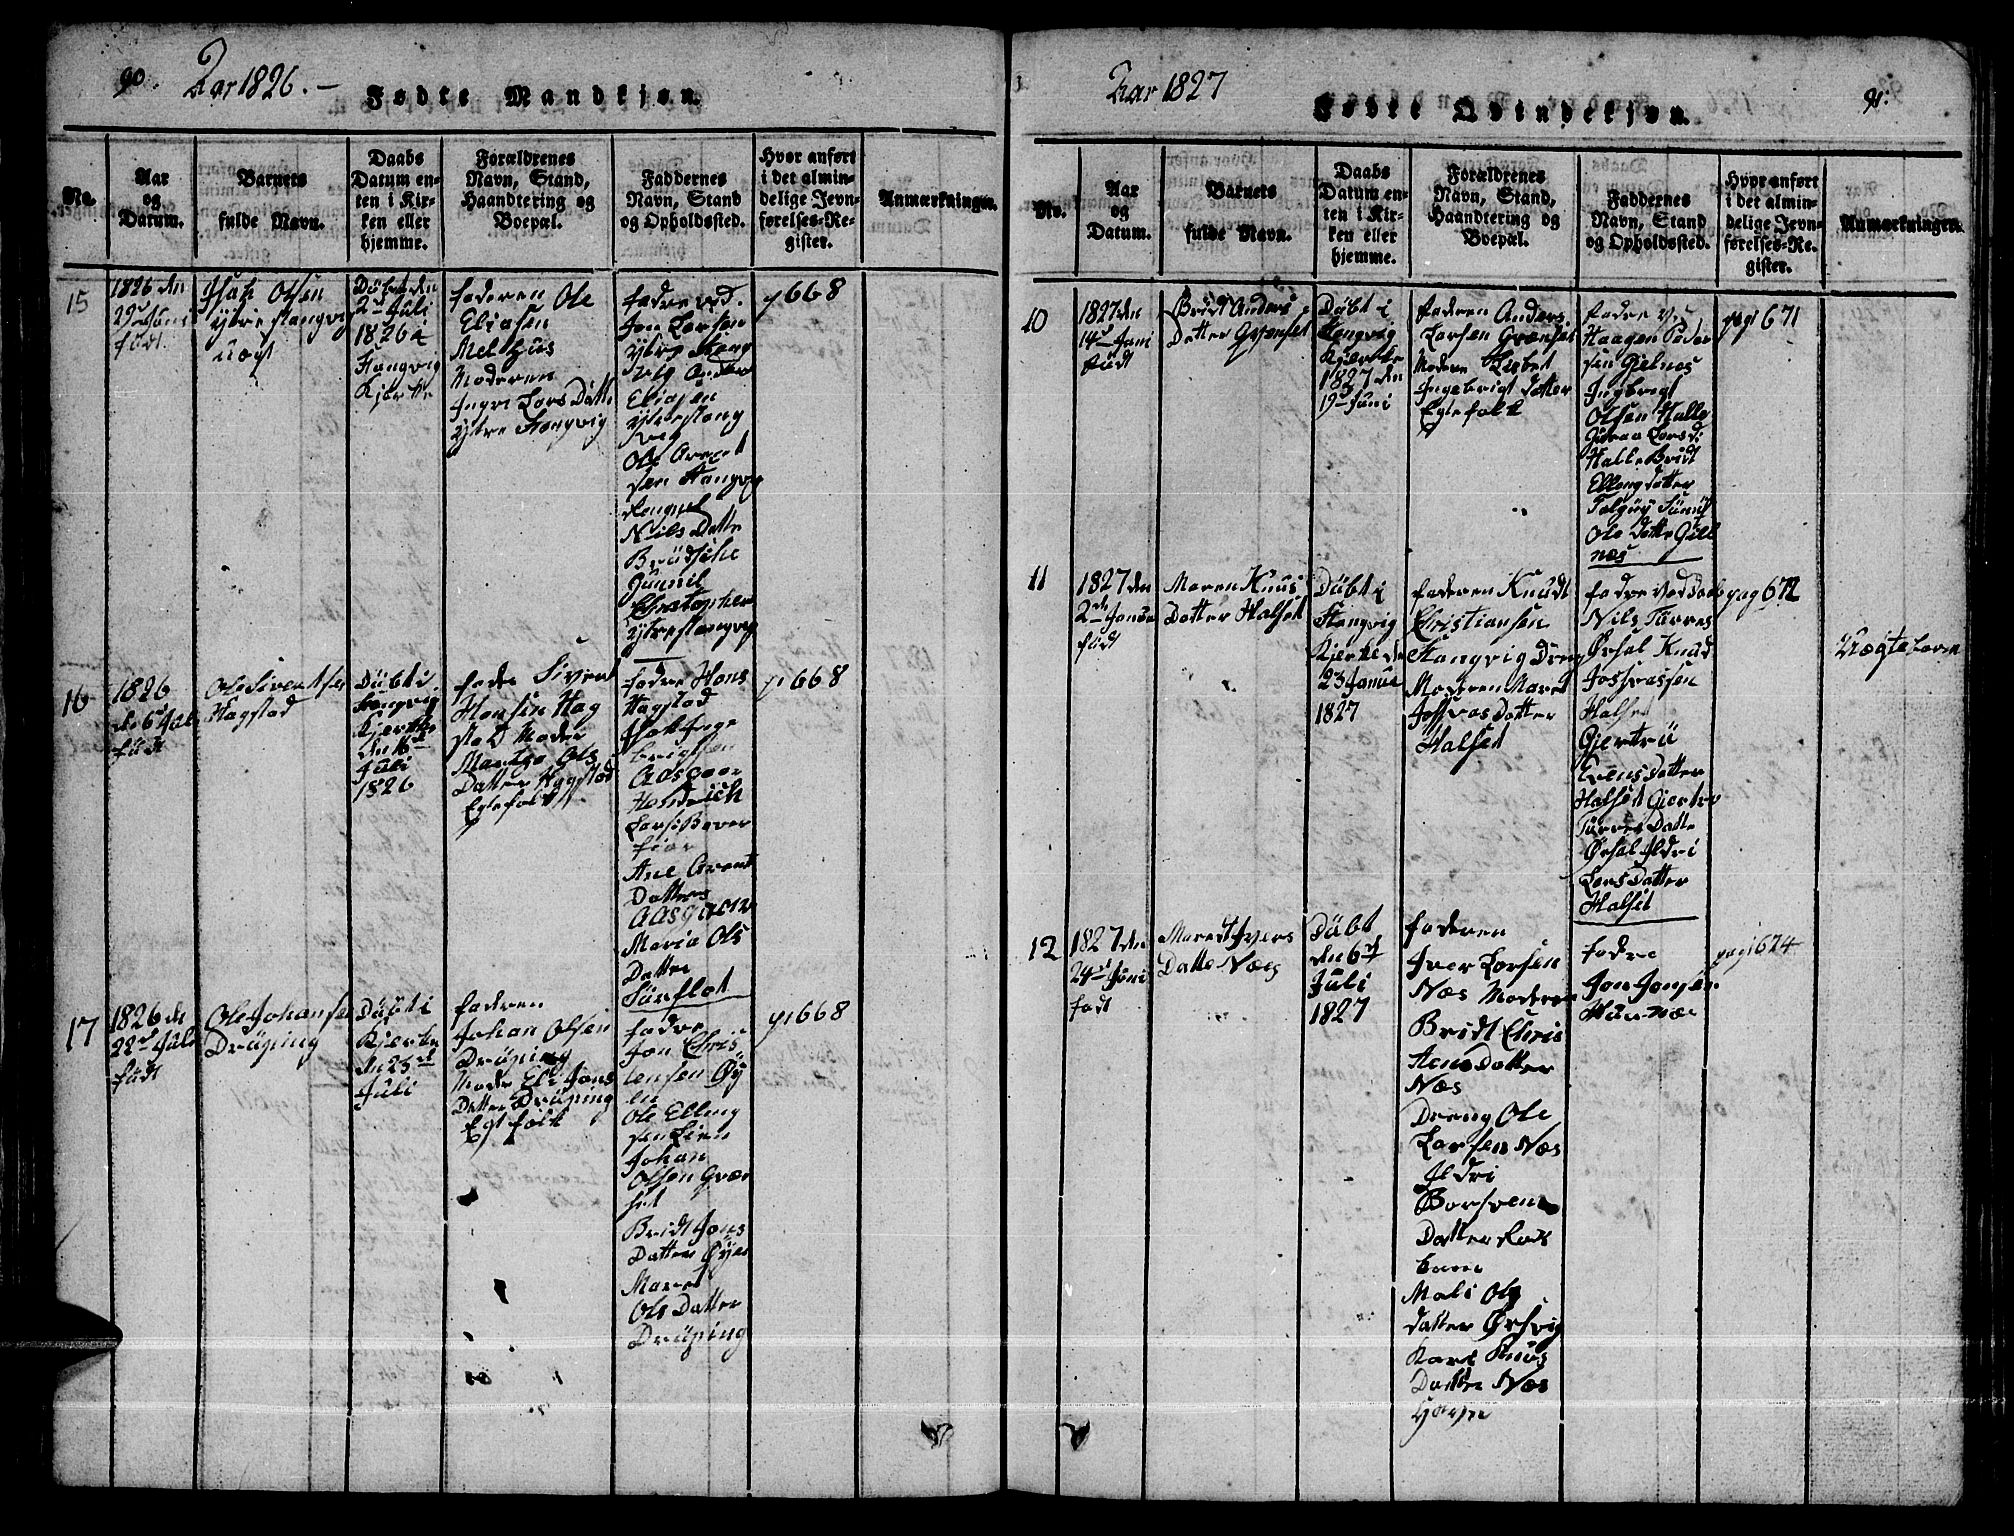 90.
Aar 1826. –
Fødte Mandkjøn.
No.
Aar
og
Datum.
Barnets
fulde Navn.
Daabs
Datum en-
ten i Kir-
ken eller
hjemme.
Forældrenes
Navn, Stand,
Haandtering og
Boepæl.
Faddernes
Navn, Stand
og Opholdssted.
Hvor anført
i det almin-
delige Jevn-
førelses-Re-
gister.
Anmærkninger.
15
1826 den
29de Juni
födt
Isak Olsen
ytre stangvig
uægt
Döbt den
2d Juli
1826 i
Stangvig
Kjerke
faderen Ole
Eliasen
Melhus
Moderen
Ingri Lars Datte
ytre Stangvig
fadre ved
Jon Larsen
ytre Stang
vig
Eliasen
ytrestang
vig
Ole Arent
sen Stangvig
Nils Datte
Gunnil
Christopher
ytrestangvig
p 668
16
1826
de 6d Juli
födt
Ole Sivertsen
Hagstad
Döbt i
Stangvig
Kjerke
den 16d
Juli
1826
fader Sivert
Hansen Hag
stad Moder
Marit Ols
Datter Hagstad
Egtefolk
fadre Hans
Hagstad
Isak Inge
brigtsen
Aasgaar
Hendrich
Larsi Bæver
fior
Ane Arent
Datter
Aasgaar
Maria Ols
Datter
p 668
17
1826 de
22d Juli
födt
Ole Johansen
Dröping
Döpt i
Kjerke
den 23d
Juli
faderen
Johan Olsen
Dröping
Moder Eli Jons
Datter Dröping
Egtfolk
fadre
Jon Chris
tensen Øy
en
Ole Elling
sen Lien
Johan
Olsen Græn
set
Bridt Jons
Datter Øyen
Maret
Ols Datter
Dröping
p 668
Aar 1827
Fødte Qvindekjøn.
91.
No.
Aar
og
Datum.
Barnets
fulde Navn.
Daabs
Datum en-
ten i Kir-
ken eller
hjemme.
Forældrenes
Navn, Stand,
Haandtering og
Boepæl.
Faddernes
Navn, Stand
og Opholdssted.
Hvor anført
i det almin-
delige Jevn-
førelses-Re-
gister.
Anmærkninger.
10
1827 den
14d Juni
födt
Bridt Anders
Datter Grenset
Döbt i
Stangvig
Kjerke
1827 den
19d Juni
faderen Anders
Larsen Grænset
Modere Lisbet
Ingebrigt datter
Egtefolk
fadre ved
Haagen Peder
sen Gjelnes
Ingbrigt
Olsen Halle
Guroa Larsd.
Halle Bridt
Ellengdatter
Ole Datte Giell
næs
pag 671
11
1827 den
2de Janua
födt
Maren Knus
Datter Halset
Döbt i
Stangvig
Kjerke de
23 Janua
1827
faderen Knudt
Cristiansen
Stangvig Dreng
Moderen Maret
Datter
Halset
fadre ved Daab
Nils Torres
Ørsal Knud
Halse
Gjertru
Evens Datter
Halset Giertru
Torres Datte
Ørsal Ildri
Lars Datter
Halset
pag 672
Uægte barn
12
1827 den
24d Juni
födt
Maredt Ivers
Datte Næs
Döbt
den 6d
Juli
1827
faderen
Iver Larsen
Næs Moderen
Bridt Chris
tens Datter
Næs
Dreng Ole
Larsen Næs
Ildri
Datter
Mali Ols
datter Ørsvig
Kari Knus
Datter Næs
fadre
Jon Jonsen
pag 674